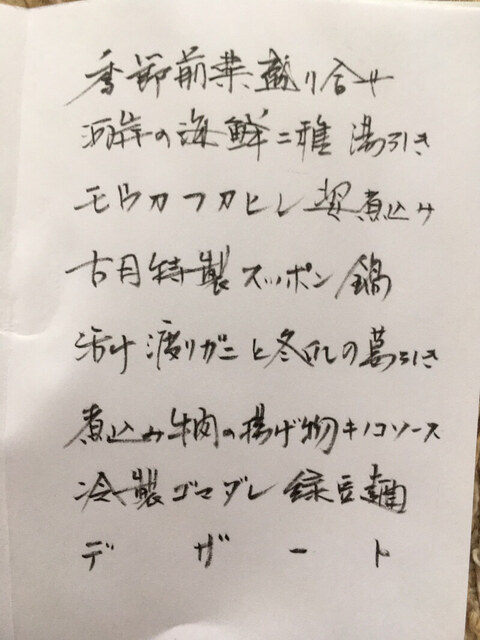 季節前菜盛り合せ
河岸の海鮮二種 湯引き
モウカフカヒレ 煮込み
古月特製スッポン鍋
活け渡りガニと冬瓜の葛引き
煮込み牛肉の揚げ物キノコソース
冷製ゴマダレ 緑豆麺
デザート